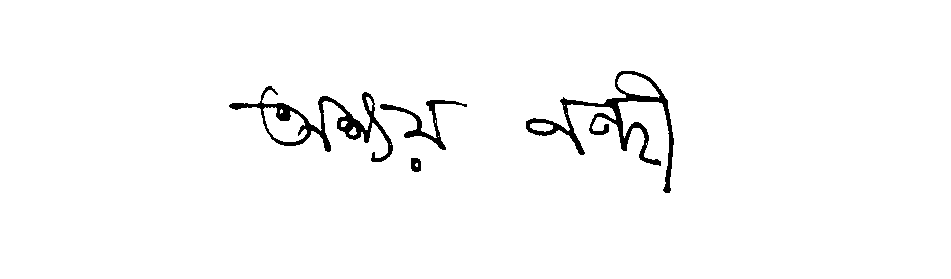 অক্ষয় নন্দী